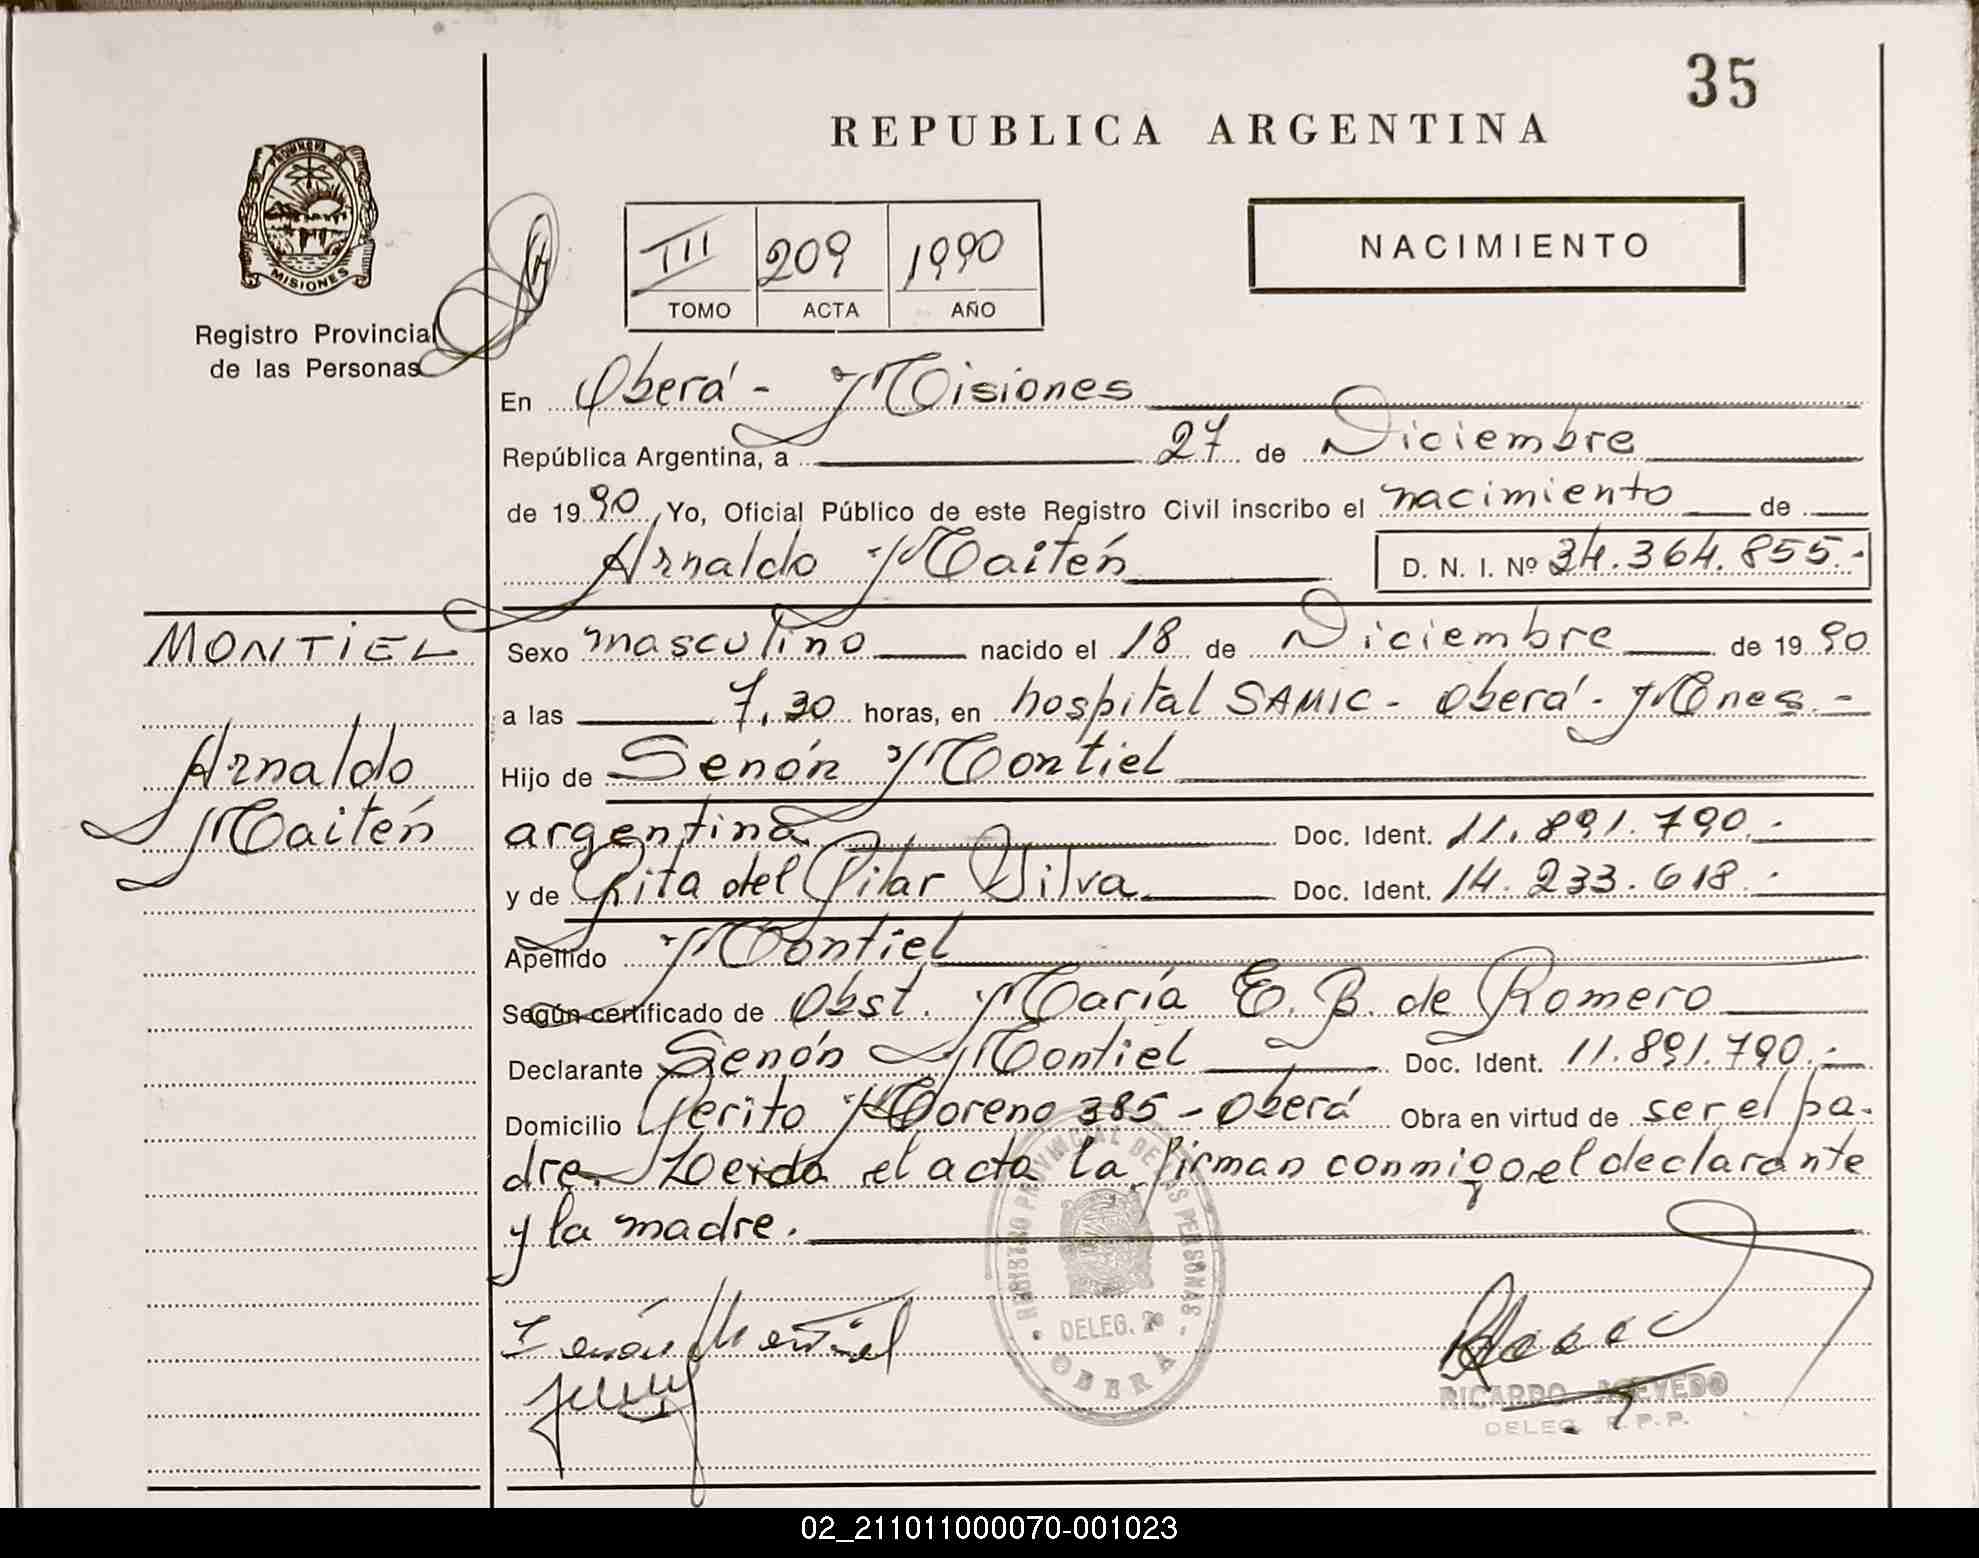 35
REPUBLICA ARGENTINA
PROVINCIA DE
MISIONES
Registro Provincial
de las Personas
III 209 1990
TOMO ACTA AÑO
NACIMIENTO
En Oberá - Misiones
República Argentina, a 27 de Diciembre
de 1990 Yo, Oficial Público de este Registro Civil inscribo el nacimiento de
Arnaldo Maitén D. N. I. Nº 34.364.855.-
MONTIEL
Arnaldo
Maitén
Sexo masculino nacido el 18 de Diciembre de 1990
a las 7,30 horas, en hospital SAMIC - Oberá - Mnes. -
Hijo de Senón Montiel
argentina Doc. Ident. 11.891.790.-
y de Rita del Pilar Silva Doc. Ident. 14.233.618.-
Apellido Montiel
Según certificado de Obst. María E. B. de Romero
Declarante Senón Montiel Doc. Ident. 11.891.790.-
Domicilio Perito Moreno 385 - Oberá Obra en virtud de ser el pa-
dre. Leida el acta la firman conmigo el declarante
y la madre.
REGISTRO PROVINCIAL DE LAS PERSONAS
DELEG. 2ª
OBERA
Zenón Montiel
RICARDO ACEVEDO
DELEG. R.P.P.
02_211011000070-001023